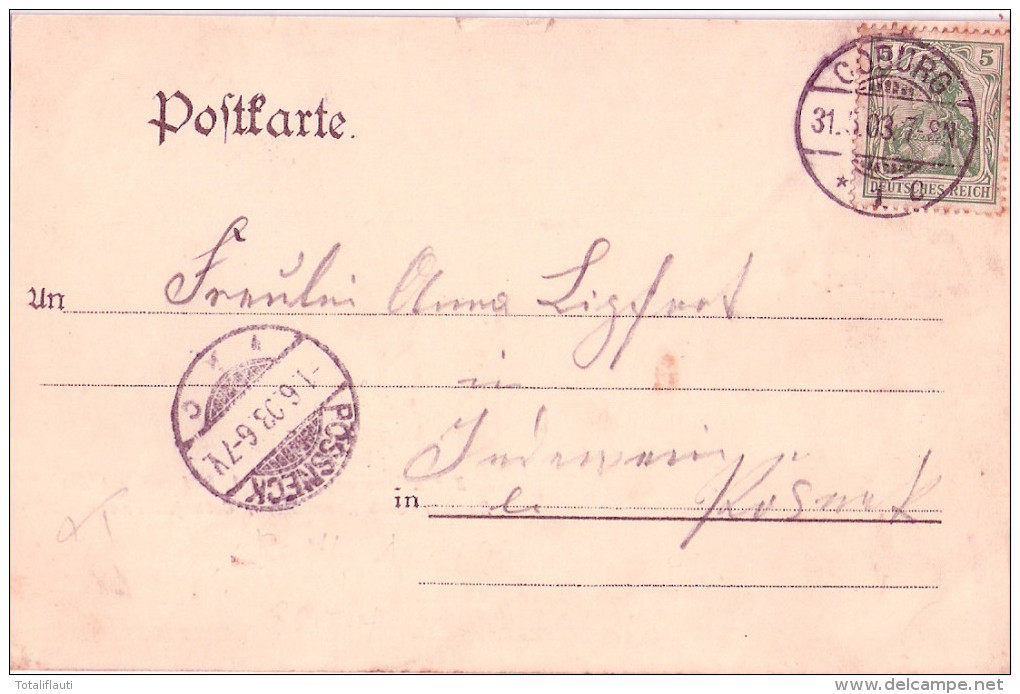 Postkarte.
5
COBURG
31.5.03. 7-8N
* 1. C
DEUTSCHES REICH
An Fräulein Anna Lipfert
in
in
-1.6.03. 6-7V.
PÖSSNECK
Totaliflauti
www.delcampe.net